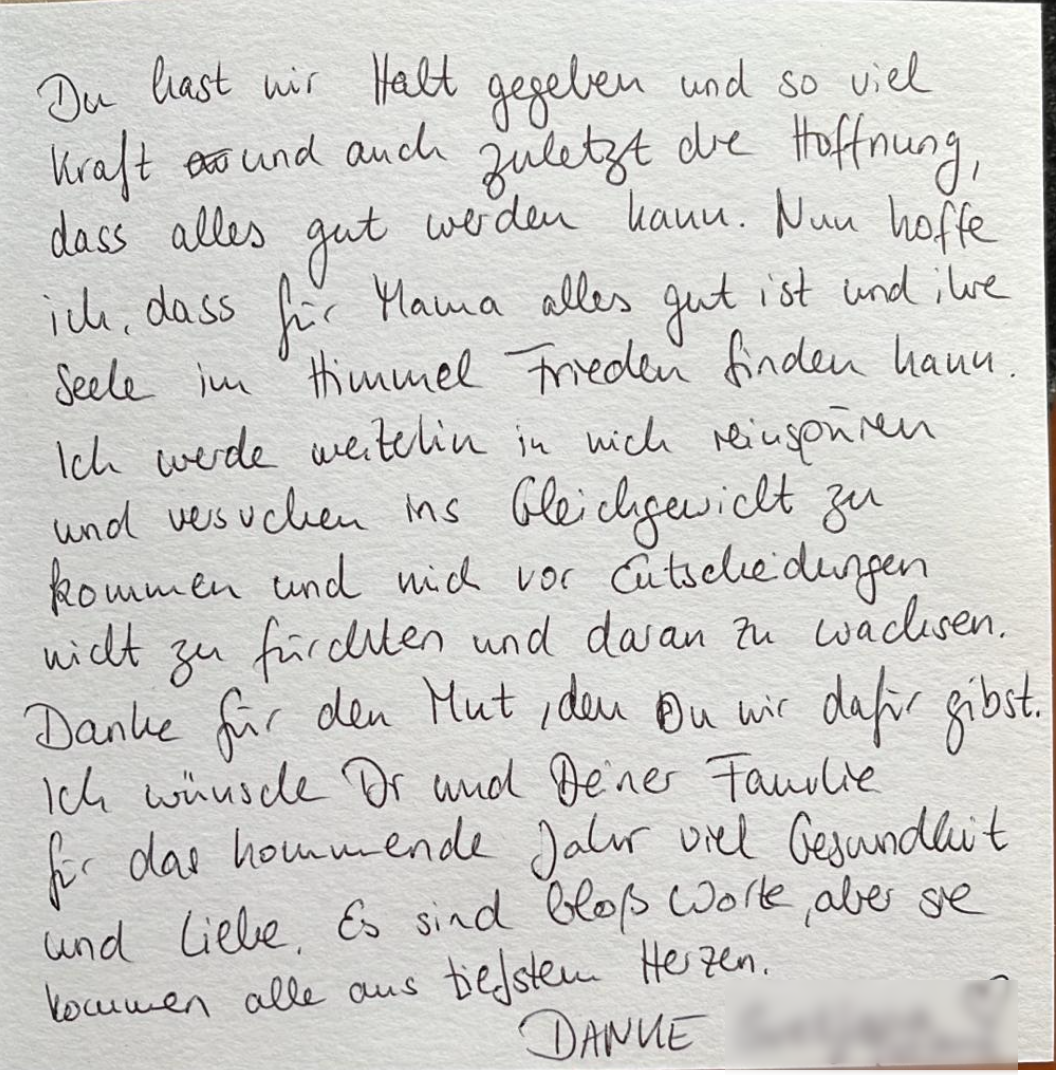 Du hast mir Halt gegeben und so viel
Kraft und auch zuletzt die Hoffnung,
dass alles gut werden kann. Nun hoffe
ich, dass für Mama alles gut ist und ihre
Seele im Himmel Frieden finden kann.
Ich werde weiterhin in mich reinspüren
und versuchen ins Gleichgewicht zu
kommen und mich vor Entscheidungen
nicht zu fürchten und daran zu wachsen.
Danke für den Mut, den Du mir dafür gibst.
Ich wünsche Dir und Deiner Familie
für das kommende Jahr viel Gesundheit
und Liebe. Es sind bloß Worte, aber sie
kommen alle aus tiefstem Herzen.
DANKE